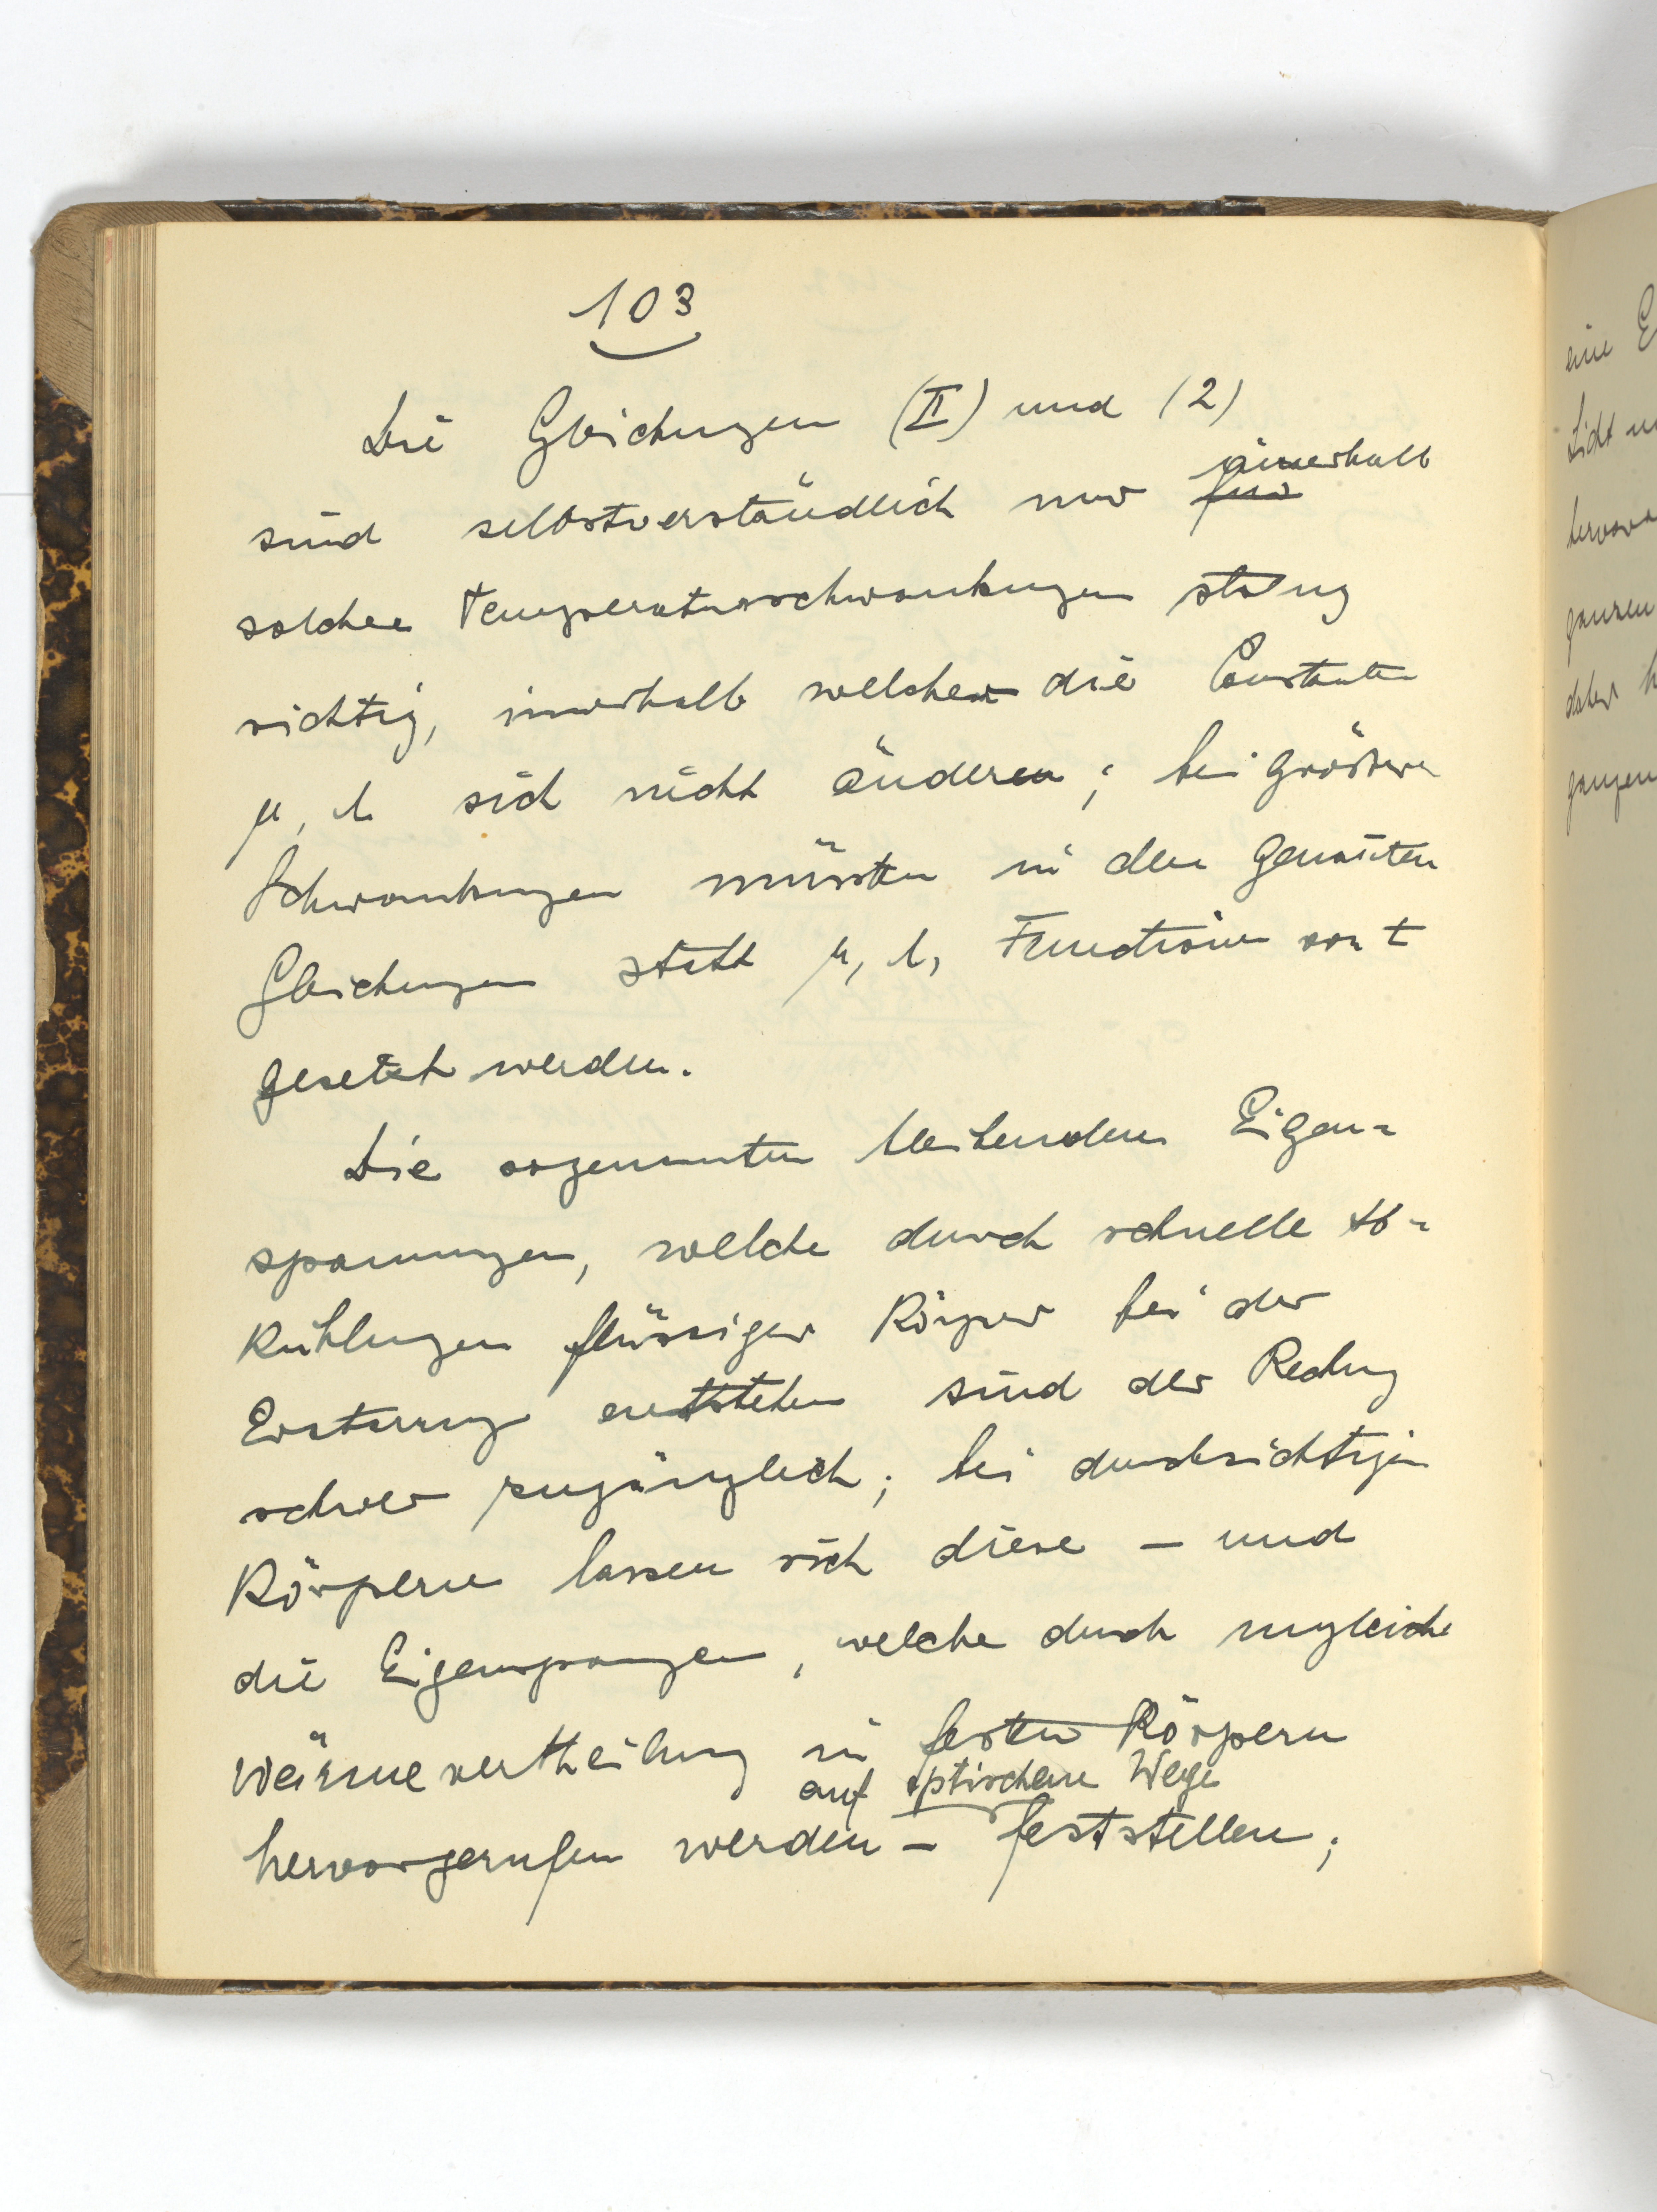 103
Die Gleichungen (II) und (2)
innerhalb
sind selbstverständlich nur für
solcher Temperaturschwankungen streng
richtig, innerhalb welcher die Constanten
μ, λ sich nicht änderen; bei größeren
Schwankungen müssten in den genannten
Gleichungen statt μ, λ, Functionen von t
gesetzt werden.
Die sogenannten bleibenden Eigen-
spannungen, welche durch schnelle Ab-
kühlungen flüssiger Körper bei der
Erstarrung entstehen sind der Rechnung
schwer zugänglich; bei durchsichtigen
Körpern lassen sich diese – und
die Eigenspannungen, welche durch ungleiche
Wärmevertheilung in festen Körpern
auf optischem Wege
hervorgerufen werden – feststellen;
eine E
Licht
hervor
ganzen
daher